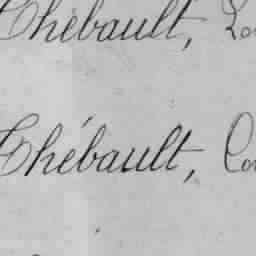 Thébault,
Thébault,